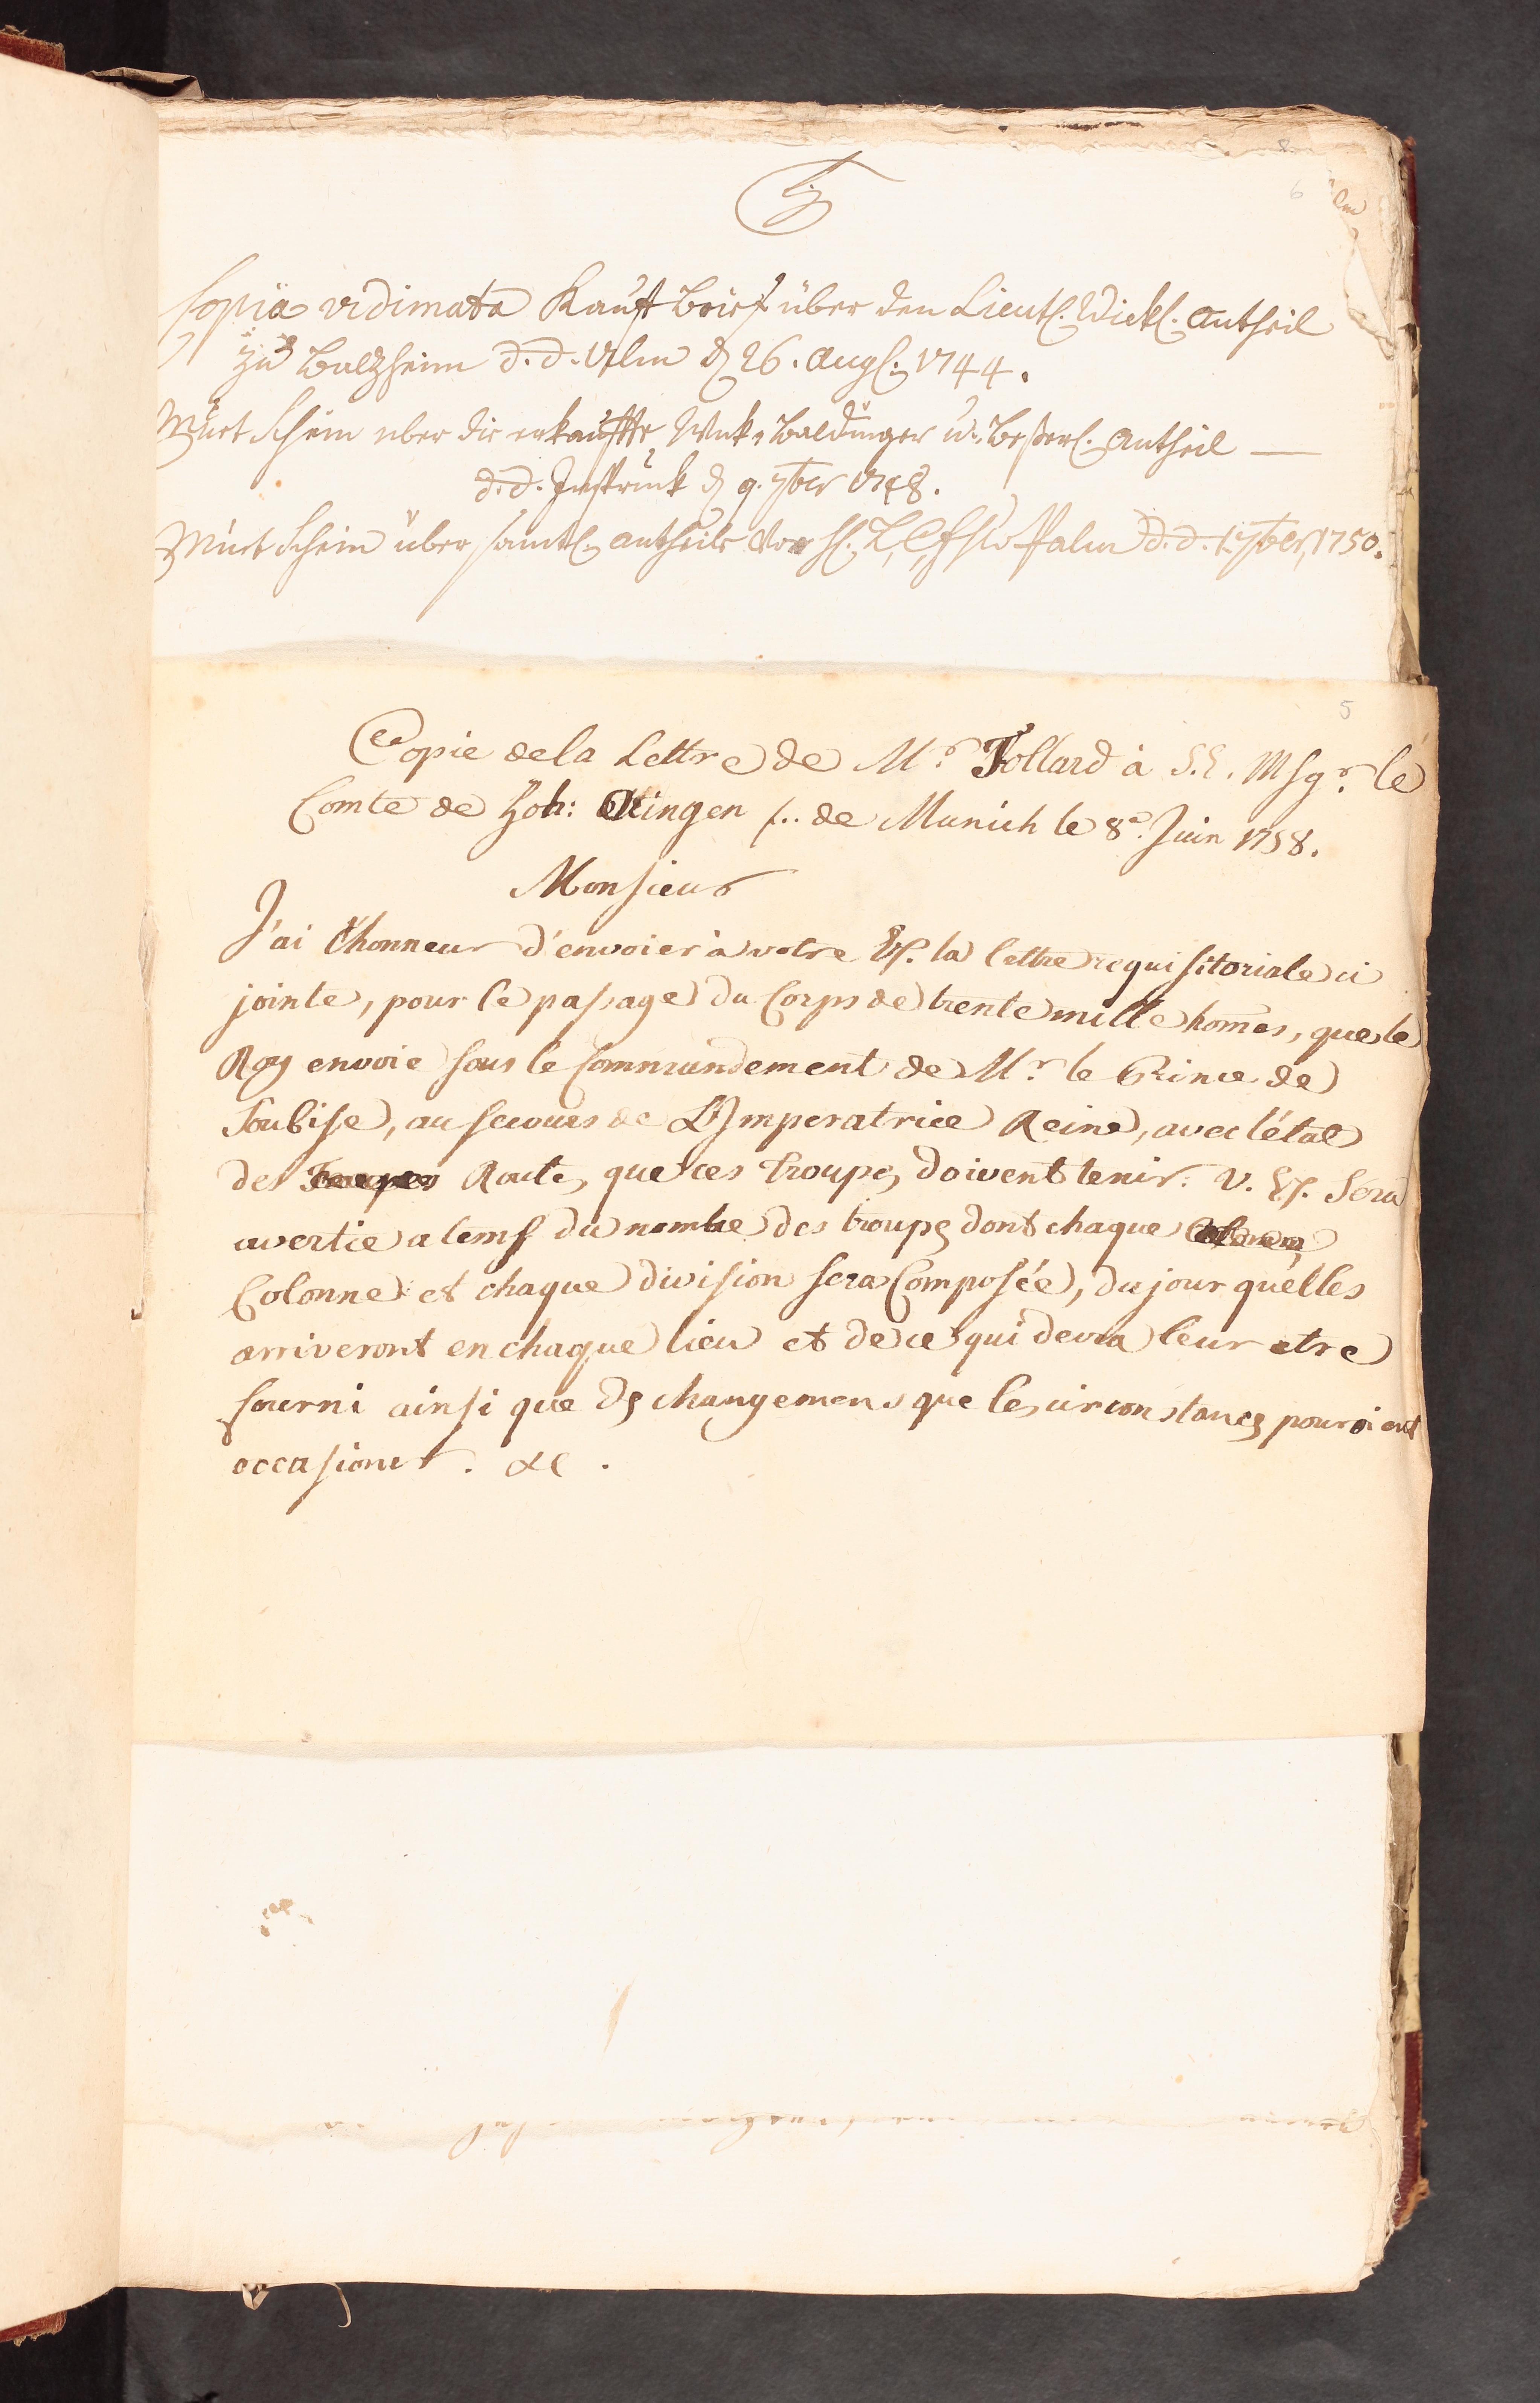 Copia vidimata Kauff Brief über den Lieutl. Wickl. Antheil
zu Balzheim d. d. Ulm d 26. Augl. 1744.
Muet Schein uber die erkauffte, Baldinger u. Beßerl. Antheil —
d. d. Insbruck d 9. 7ber 1748.
Muet Schein über samtl. Antheile von Palm d. d. 1. 7ber, 1750.
6
5
Copie de la Lettre de Mr. Follard à S. E. Msgr. le
Comte de Hoh: Ottingen /.. de Munich le 8e. Juin 1758.
Monsieur
J'ai l'honneur d'envoier à votre Ex. la lettre requisitoriale ci
jointe, pour le passage du Corps de trente mille homes, que le
Roy envoie sous le Commandement de Mr. le Prince de
Soubise, au secours de L'Imperatrice Reine, avec l'état
des Troupes Routes, que ces troupes doivent tenir. V. Ex. Sera
avertie a tems du nombre des troupes dont chaque
Colonne et chaque division sera Composée, du jour qu'elles
arriveront en chaque lieu et de ce qui devra leur etre
fourni ainsi que des changemens que les circonstances pouroient
occasioner. &c.